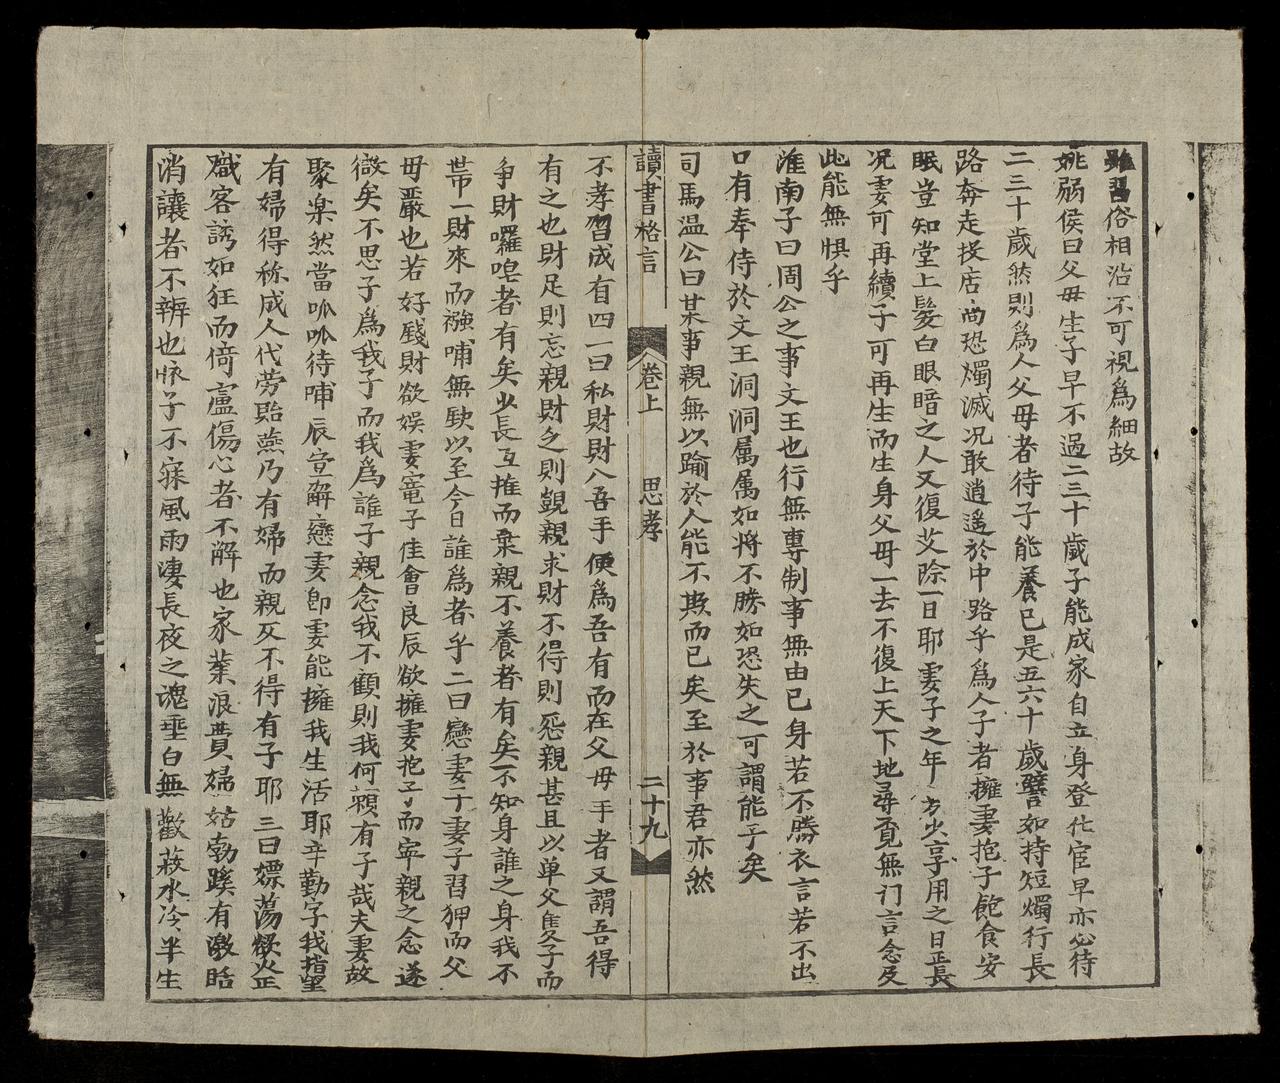 雖習俗相沿不可視為細故
姚弱侯曰父毋生子早不過二三十歲子能成家自立身登仕宦早亦必待
二三十歲然則為人父母者待子能養已是五六十歲譬如持短燭行長
路奔走投店尚恐燭滅况敢逍遥於中路乎為人子者擁妻抱子飽食安
眠豈知堂上髮白眼暗之人又復艾除一日耶妻子之年方少享用之日正長
况妻可再續子可再生而生身父毋一去不復上天下地尋覓無门言念及
此能無惧乎
淮南子曰周公之事文王也行無專制事無由已身若不勝衣言若不出
口有奉侍於文王洞洞属属如將不勝如恐失之可謂能子矣
司馬温公曰某事親無以踰於人能不欺而已矣至於事君亦然
讀書格言 卷上 思孝 二十九
不孝習成有四一曰私財財入吾手便為吾有而在父毋手者又謂吾得
有之也財足則忘親財乏則覬親求財不得則怨親甚且以单父隻子而
争財囉唣者有矣少長互推而棄親不養者有矣不知身誰之身我不
帶一財來而襁哺無缺以至今日誰為者乎二曰戀妻子妻子習狎而父
毋嚴也若好錢財欲娱妻寵子佳會良辰欲擁妻抱子而寧親之念遂
微矣不思子為我子而我為誰子親念我不顧則我何賴有子哉夫妻故
聚楽然當呱呱待哺辰豈觧戀妻卽妻能擁我生活耶辛勤字我指望
有婦得称成人代劳貽燕乃有婦而親反不得有子耶三曰嫖蕩慾火正
熾客誘如狂而倚廬傷心者不觧也家業浪費婦姑勃蹊有激聒
消讓者不辨也怺子不寐風雨凄長夜之魂垂白無歡菽水冷半生